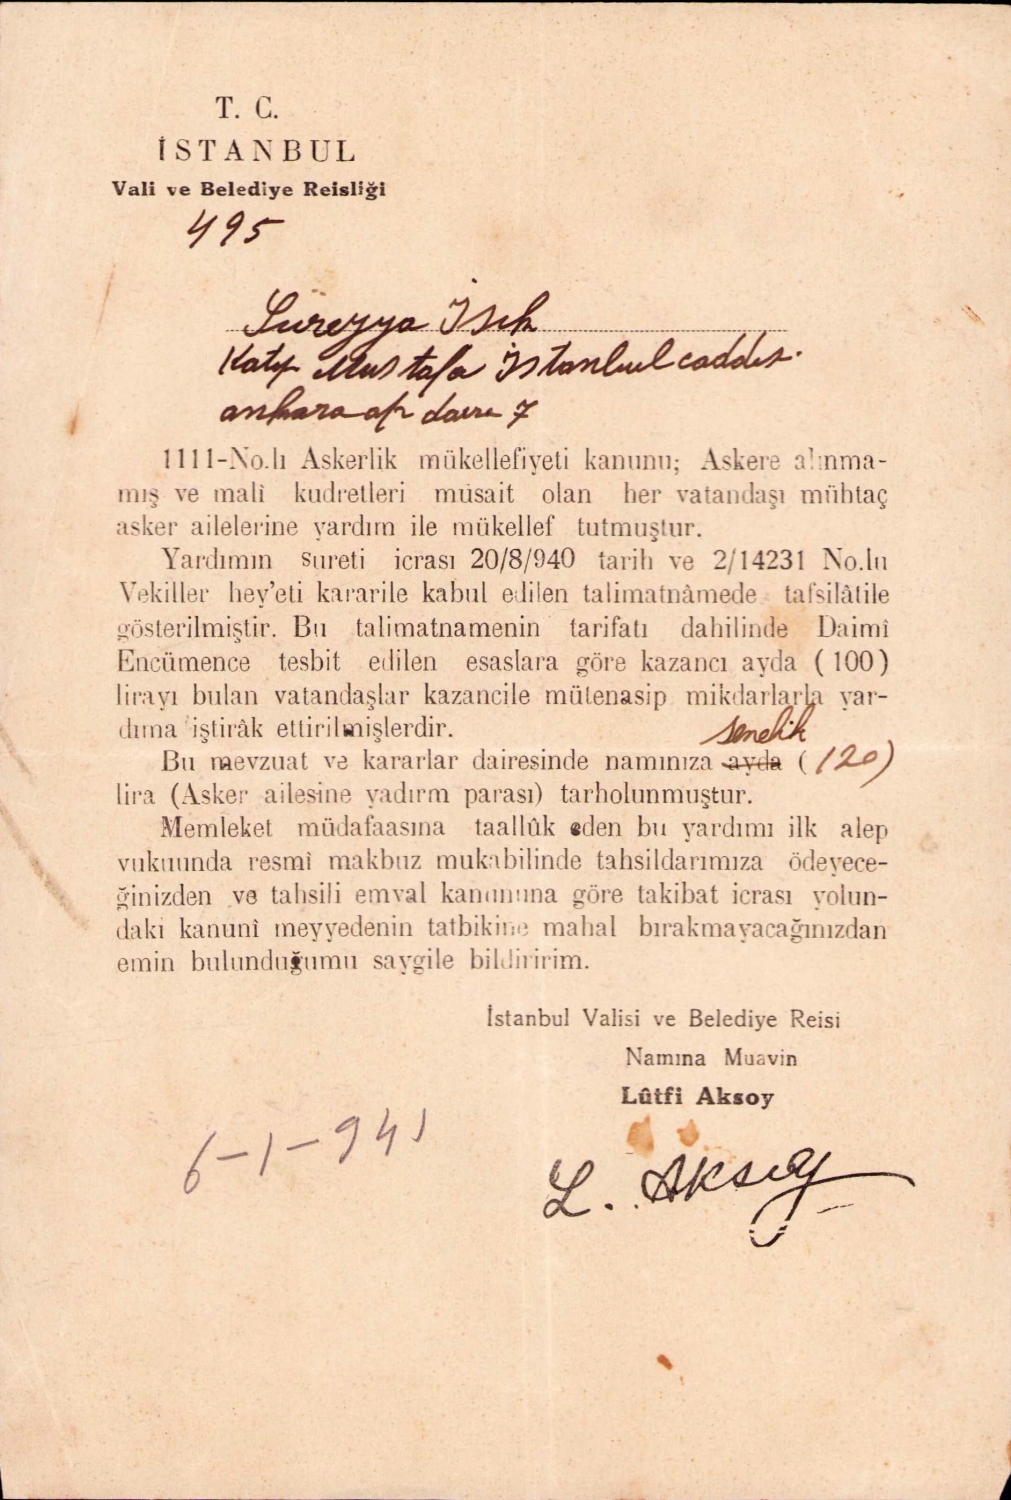 T. C.
İSTANBUL
Vali ve Belediye Reisliği
495
Süreyya İşık
Katip Mustafa İstanbul caddesi.
ankara ap daire 7
1111-No.lı Askerlik mükellefiyeti kanunu; Askere alınma-
mış ve malî kudretleri müsait olan her vatandaşı mühtaç
asker ailelerine yardım ile mükellef tutmuştur.
Yardımın sureti icrası 20/8/940 tarih ve 2/14231 No.lu
Vekiller hey'eti kararile kabul edilen talimatnâmede tafsilâtile
gösterilmiştir. Bu talimatnamenin tarifatı dahilinde Daimî
Encümence tesbit edilen esaslara göre kazancı ayda (100)
lirayı bulan vatandaşlar kazancile mütenasip mikdarlarla yar-
dıma iştirâk ettirilmişlerdir.
senelik
Bu mevzuat ve kararlar dairesinde namınıza ayda (120)
lira (Asker ailesine yadırm parası) tarholunmuştur.
Memleket müdafaasına taallûk eden bu yardımı ilk alep
vukuunda resmî makbuz mukabilinde tahsildarımıza ödeyece-
ğinizden ve tahsili emval kanununa göre takibat icrası yolun-
daki kanunî meyyedenin tatbikine mahal bırakmayacağınızdan
emin bulunduğumu saygile bildiririm.
İstanbul Valisi ve Belediye Reisi
Namına Muavin
Lûtfi Aksoy
6-1-941
L. Aksoy